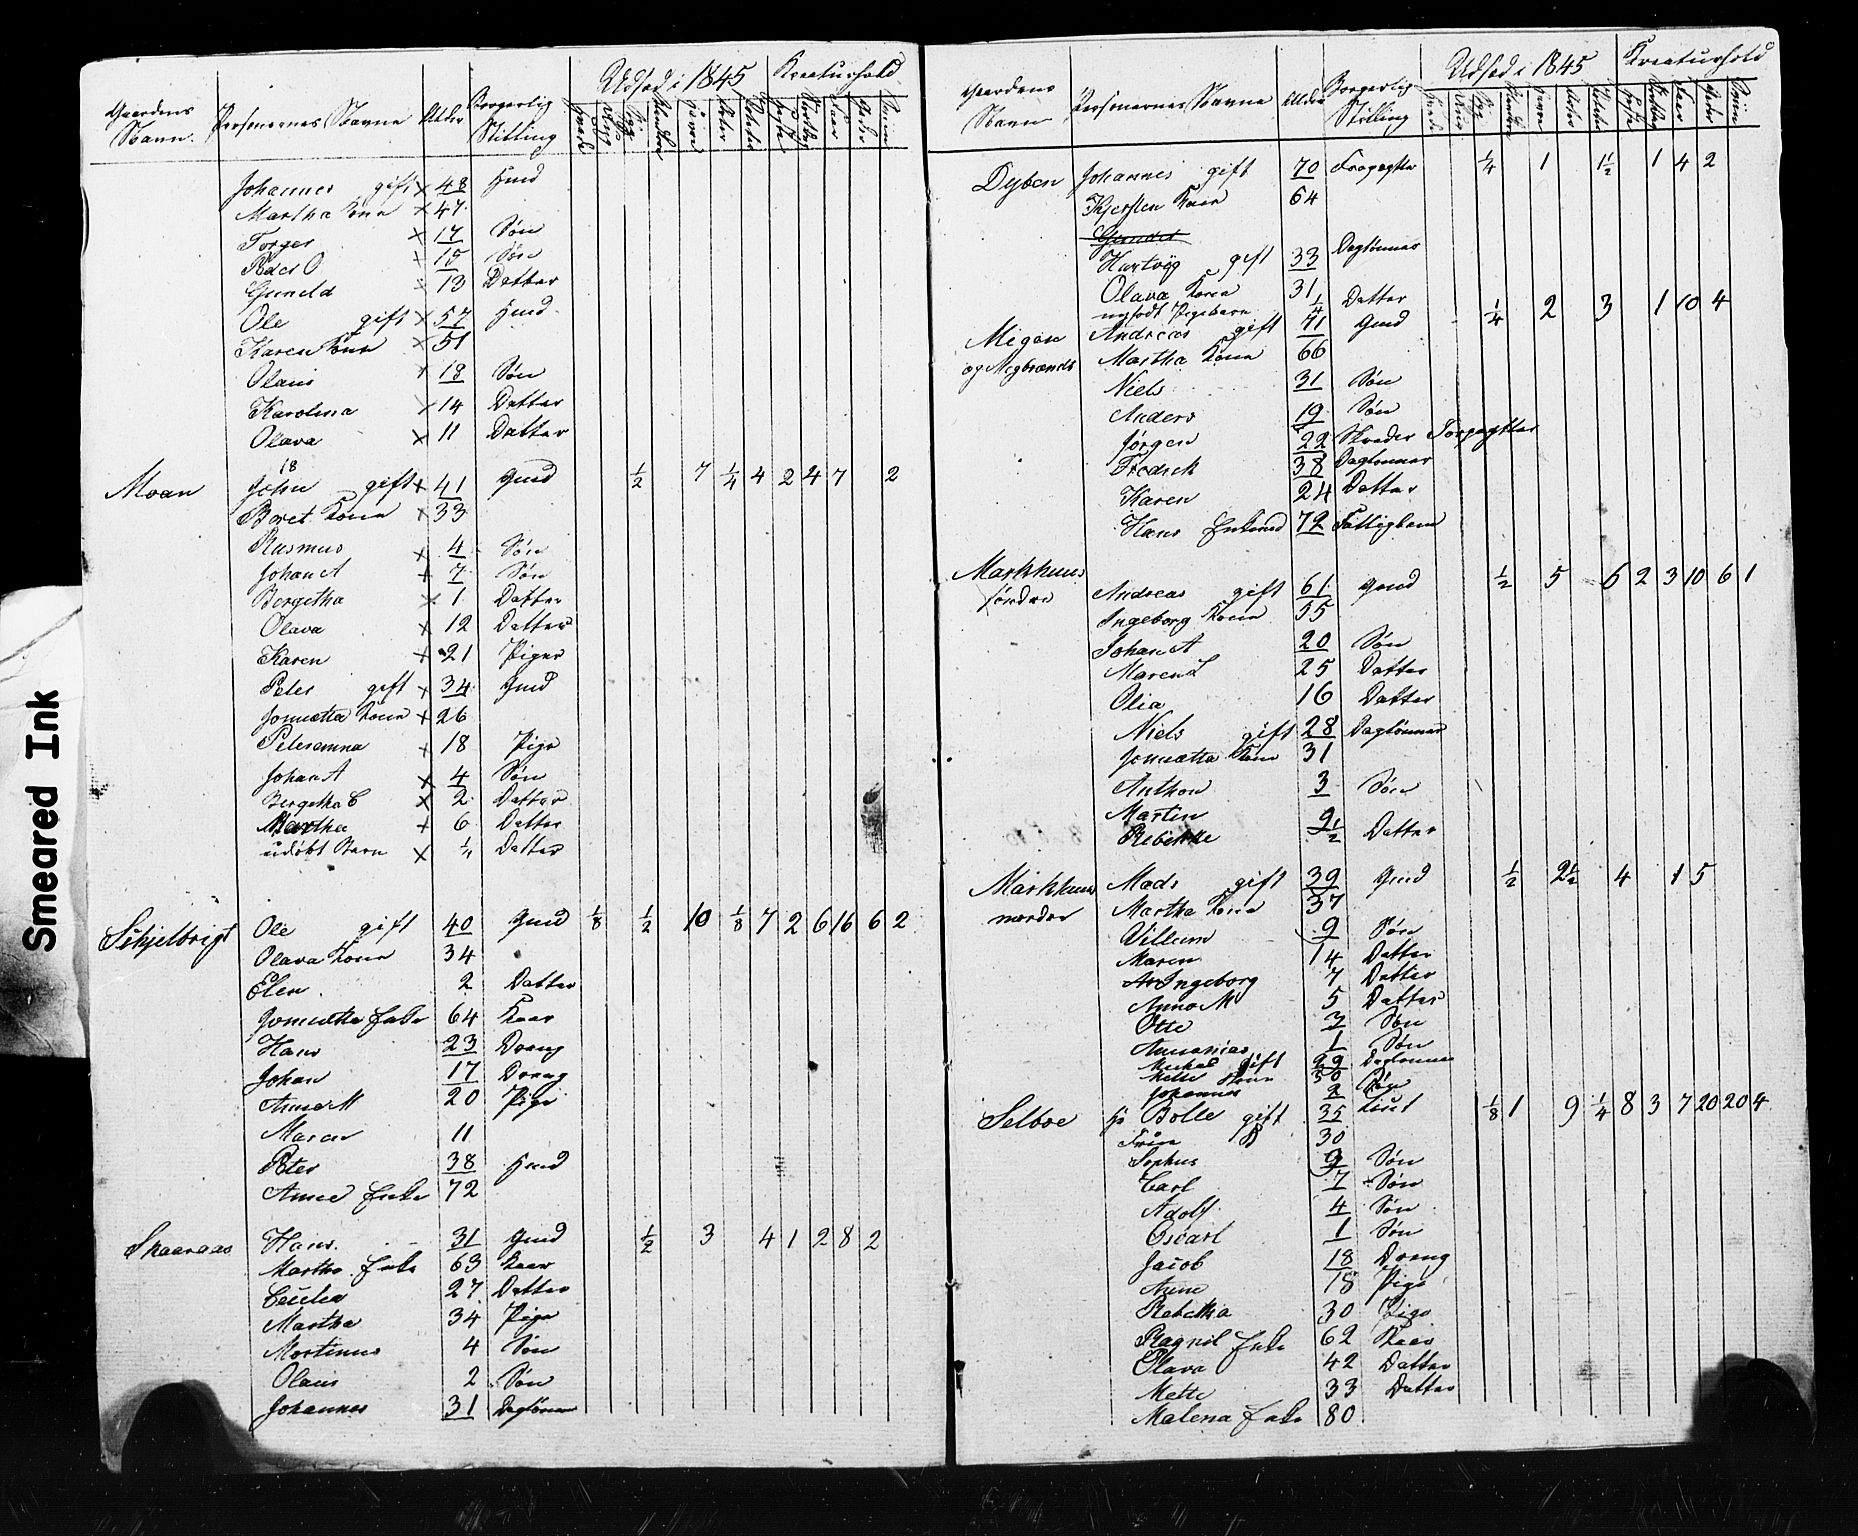 Smeared Ink
Gaardens Navn. Personernes Navne Alder Borgerlig Stilling Udsæd i 1845 Kreaturhold
Johannes gift x 48 Hmd
Martha Kone x 47
Torger x 17 Søn
Peder O x 15 Søn
Gunild 13 Datter
Ole gift x 57 Hmd
Karen Kone x 51
Olaus x 18 Søn
Karolina x 14 Datter
Olava x 11 Datter
18
Moan John gift x 41 Gmd 1/2 7 1/4 4 2 4 7 2
Beret Kone x 33
Rasmus x 4 Søn
Johan A x 7 Søn
Bergitha x 1 Datter
Olava x 12 Datter
Karen x 21 Pige
Peter gift x 34 Gmd
Jonetta Kone x 26
Peteramna x 18 Pige
Johan A x 4 Søn
Bergitha C x 2 Datter
Martha x 6 Datter
udøbt Barn x 1/4 Datter
Schjelbrigt Ole gift 40 Gmd 1/8 1/2 10 1/8 7 2 6 16 6 2
Olava Kone 34
Elen 2 Datter
Jonetta Enke 64 Kaar
Hans 23 Dreng
Johan 17 Dreng
Anne M 20 Pige
Maren 11
Peter 38 Hmd
Anne Enke 72
Skaaraas Hans. 31 Gmd 1/2 3 4 1 2 8 2
Martha Enke 63 Kaar
Cecilia 27 Datter
Martha 34 Pige
Mortinus 4 Søn
Olaus 2 Søn
Johannes 31 Dagløner
Gaardens Navn Personernes Navne Alder Borgerlig Stilling Udsæd i 1845 Kreaturhold
Dyben Johannes gift 70 Forpagter 1/4 1 1 1/2 1 4 2
Kjersten Kone 64
Hartvig gift 33 Daglønner
Olava Kone 31
nyfødt Pigebarn 1/4 Datter
Migen Andreas gift 71 Gmd 1/4 2 3 1 10 4
og Migbrænds Martha Kone 66
Niels 31 Søn
Anders 19 Søn
Jørgen 22 Skræder Forpagter
Fredrik 38 Daglønner
Karen 24 Datter
Hans Enkmd 72 Fattiglem
Markhuus Andreas gift 61 Gmd 1/2 5 6 2 3 10 6 1
søndre Ingeborg Kone 55
Johan A 20 Søn
Maren L 25 Datter
Olia 16 Datter
Niels gift 28 Daglønner
Jonetta Kone 31
Anthon 3 Søn
Martin
Rebekke 9 1/2 Datter
Markhuus Mads gift 39 Gmd 1/2 2 1/2 4 1 5
nordre Martha Kone 37
Villum 9 Søn
Maren 14 Datter
An Ingeborg 7 Datter
Anna M 5 Datter
Otte 3 Søn
Ananias 1 Søn
Mickal gift 29 Daglønner
Mette Kone 30
Johannes 2 Søn
Selboe Hr Bolle gift 35 Liut 1/8 1 9 1/4 8 3 7 20 20 4
Trine 30
Sophus 9 Søn
Carl 7 Søn
Adolf 4 Søn
Oscarl 1 Søn
Jacob 18 Dreng
Anne 18 Pige
Rebekka 30 Pige
Ragnil Enke 62 Kaar
Olava 42 Datter
Mette 33 Datter
Malena Enke 80